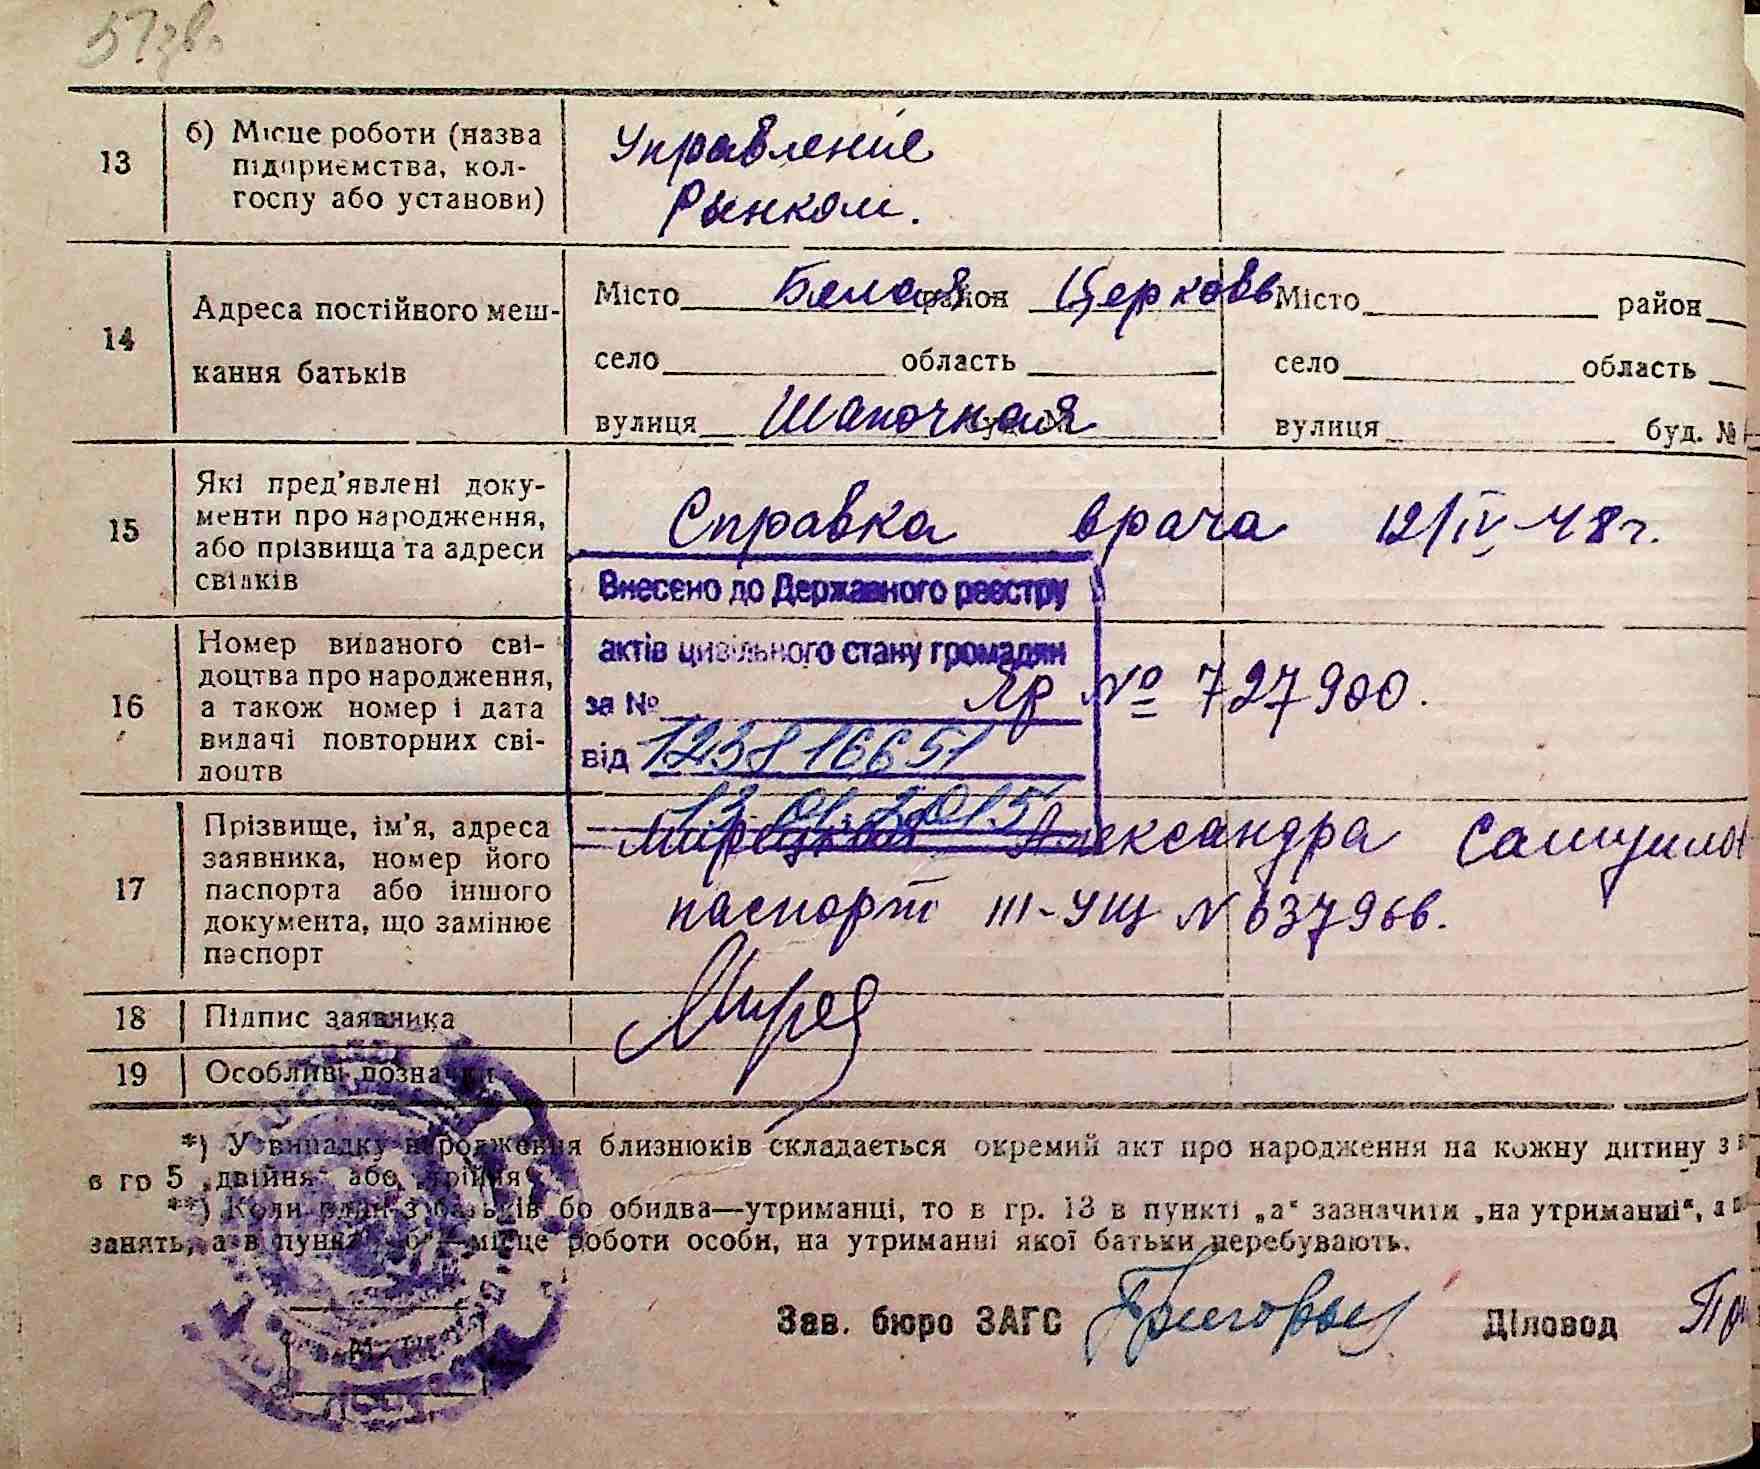 57зв.
13
б) Місце роботи (назва
підприємства, кол-
госпу або установи)
Управление
Рынком.
14
Адреса постійного меш-
кання батьків
Місто Белая район Церковь
село область
вулиця Шапочная
Місто район
село область
вулиця буд. №
15
Які пред’явлені доку-
менти про народження,
або прізвища та адреси
свідків
Справка врача 12/IV-48г.
Внесено до Державного реєстру
актів цивільного стану громадян
за №
від 12381 16651
13.01.2015
16
Номер виданого сві-
доцтва про народження,
а також номер і дата
видачі повторних сві-
доцтв
№ 727900.
17
Прізвище, ім’я, адреса
заявника, номер його
паспорта або іншого
документа, що замінює
паспорт
Александра
паспорт III-УЩ N 637966.
18
Підпис заявника
19
Особливі позначки
*) У випадку народження близнюків складається окремий акт про народження на кожну дитину з
в гр 5 „двійня“ або „трійня“
**) Коли один з батьків бо обидва—утриманці, то в гр. 13 в пункті „а“ зазначити „на утриманні“, а
занять, а в пункті „б“ місце роботи особи, на утриманні якої батьки перебувають.
Зав. бюро ЗАГС
Діловод
М. П.